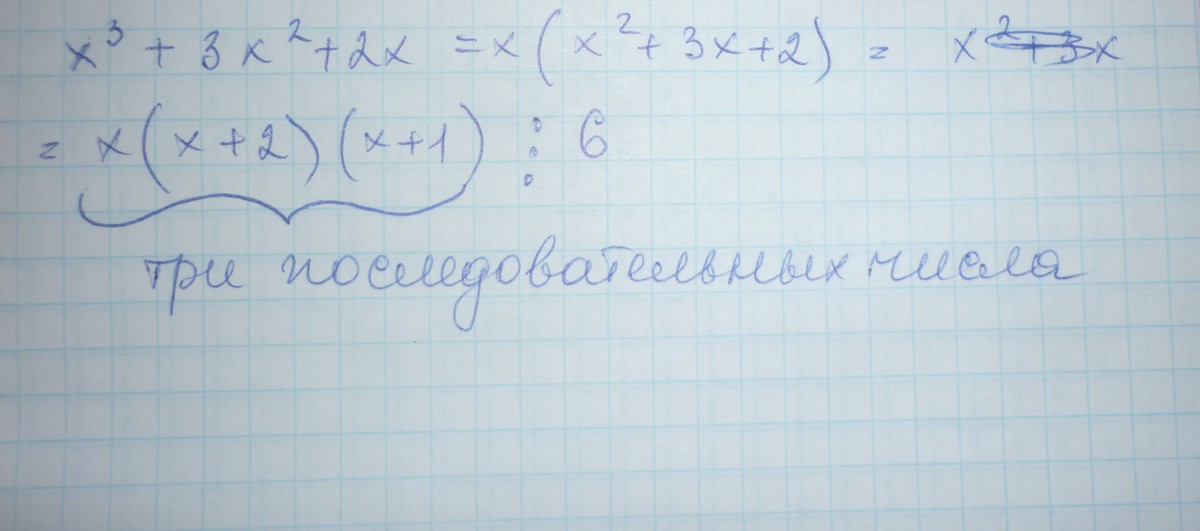 x³ + 3x² + 2x = x(x² + 3x + 2) = x² + 3x
= x(x + 2)(x + 1) ⋮ 6
три последовательных числа